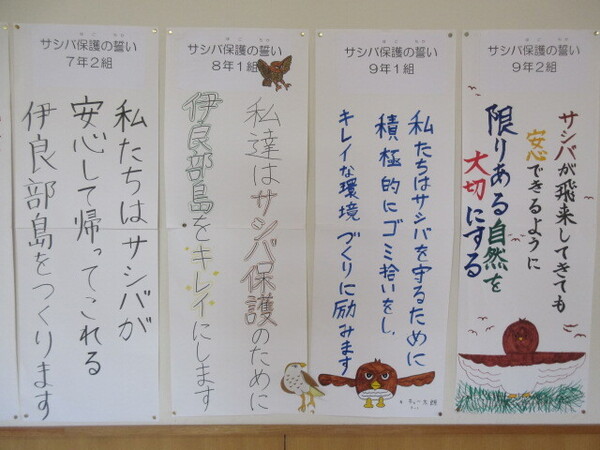 サシバ保護の誓い
7年2組
私たちはサシバが
安心して帰ってこれる
伊良部島をつくります
サシバ保護の誓い
8年1組
私達はサシバ保護のために
伊良部島をキレイにします
サシバ保護の誓い
9年1組
私たちはサシバを守るために
積極的にゴミ拾いをし、
キレイな環境づくりに励みます
サシバ保護の誓い
9年2組
サシバが飛来してきても
安心できるように
限りある自然を
大切にする